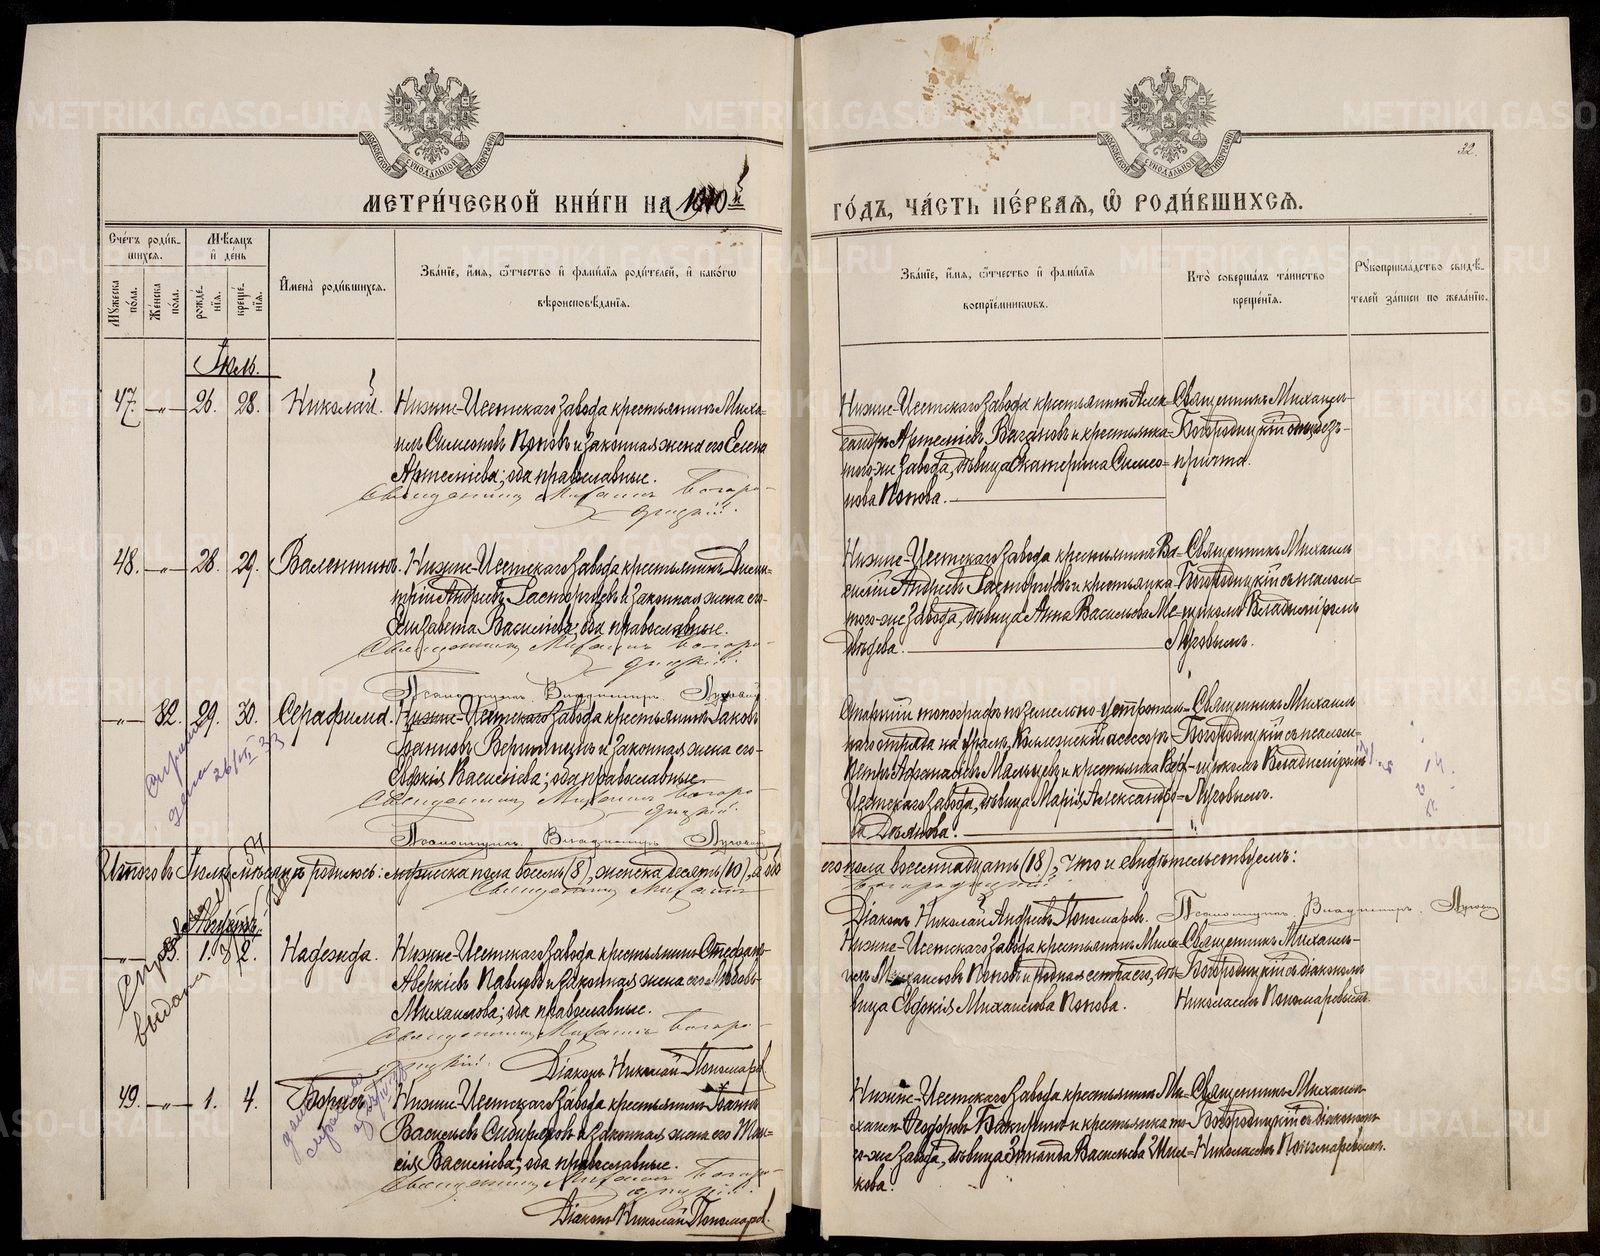 МЕТРИ́ЧЕСКОЙ КНИ́ГИ НА 1910 й
ГО́ДЪ, ЧА́СТЬ ПЕ́РВАЯ, Ѽ РОДИ́ВШИХСЯ.
32.
Сче́тъ роди́в-
шихся.
Мꙋжеска по́ла.
Же́нска по́ла.
Мѣ́сяцъ и де́нь
рожде́нія.
креще́нія.
Имена̀ роди́вшихся.
Зва́нїе, и́мя, ѻ҆́тчество и фами́лїя роди́телей, и како́гѡ
вѣроисповѣ́данїя.
Зва́нїе, и́мя, ѻ҆́тчество и фами́лїя
воспрїе́мникѡвъ.
Кто̀ соверша́лъ та́инство
креще́нїя.
Рꙋкоприкла́дство свидѣ́-
телей за́писи по жела́нїю.
Іюль.
47. —„— 26. 28. Николай.
Нижне-Исетскаго завода крестьянинъ Миха-
илъ Симеоновъ Поповъ и законная жена его Елена
Артемiева; оба православные.
Священникъ Михаилъ Богоро-
дицкій.
Нижне-Исетскаго завода крестьянинъ Алек-
сандръ Артемiевъ Вагановъ и крестьянка
того-же завода, дѣвица Екатерина Симео-
нова Попова.
Священникъ Михаилъ
Богородицкій безъ
причта.
48. —„— 28. 29. Валентинъ.
Нижне-Исетскаго завода крестьянинъ Дими-
трій Андреевъ Расторгуевъ и законная жена его
Елизавета Василiева; оба православные.
Священникъ Михаилъ Богоро-
дицкій.
Псаломщикъ Владимиръ Луговый
Нижне-Исетскаго завода крестьянинъ Ва-
силій Андреевъ Расторгуевъ и крестьянка
того-же завода, дѣвица Анна Васильева Ме-
двѣдева.
Священникъ Михаилъ
Богородицкій съ псалом-
щикомъ Владимиромъ
Луговымъ.
—„— 32. 29. 30. Серафима.
Нижне-Исетскаго завода крестьянинъ Іаковъ
Іоанновъ Вершининъ и законная жена его
Евдокія Василiева; оба православные.
Священникъ Михаилъ Богоро-
дицкій.
Псаломщикъ Владимиръ Луговый
Старшій топографъ поземельно-устроитель-
наго отряда на Уралѣ, Коллежскій ассесоръ
Петръ Афанасiевъ Мальцевъ и крестьянка
Исетскаго завода, дѣвица Марія Александро-
ва
Священникъ Михаилъ
Богородицкій съ псалом-
щикомъ Владимiромъ
Луговымъ.
26/VI 33
Итого въ Іюлѣ мѣсяцѣ родилось: мужеска пола восемь (8), женска десять (10), а обо-
его пола восемнадцать (18), что и свидѣтельствуемъ:
Священникъ Михаилъ
Богородицкій.
Діаконъ Николай Андреевъ Пономаревъ. Псаломщикъ Владимиръ Луговый
Августъ.
Справка
выдана
1. 2. Надежда.
Нижне-Исетскаго завода крестьянинъ Стефанъ
Аверкiевъ Павловъ и законная жена его Любовь
Михаилова; оба православные.
Священникъ Михаилъ Богоро-
дицкій.
Діаконъ Николай Пономаревъ
Нижне-Исетскаго завода крестьянинъ Миха-
илъ Михаиловъ Поповъ и родная сестра его, дѣ-
вица Евдокія Михаилова Попова.
Священникъ Михаилъ
Богородицкій съ діакономъ
Николаемъ Пономаревымъ.
49. —„— 1. 4. Борисъ.
Нижне-Исетскаго завода крестьянинъ Іоаннъ
Васильевъ и законная жена его Таи-
сія Василiева; оба православные.
Священникъ Михаилъ Богоро-
дицкій.
Діаконъ Николай Пономаревъ
Нижне-Исетскаго завода крестьянинъ Ми-
хаилъ Ѳеодоровъ и крестьянка то-
го-же завода, дѣвица Зинаида Васильева
кова.
Священникъ Михаилъ
Богородицкій съ діакономъ
Николаемъ Пономаревымъ.
METRIKI.GASO-URAL.RU